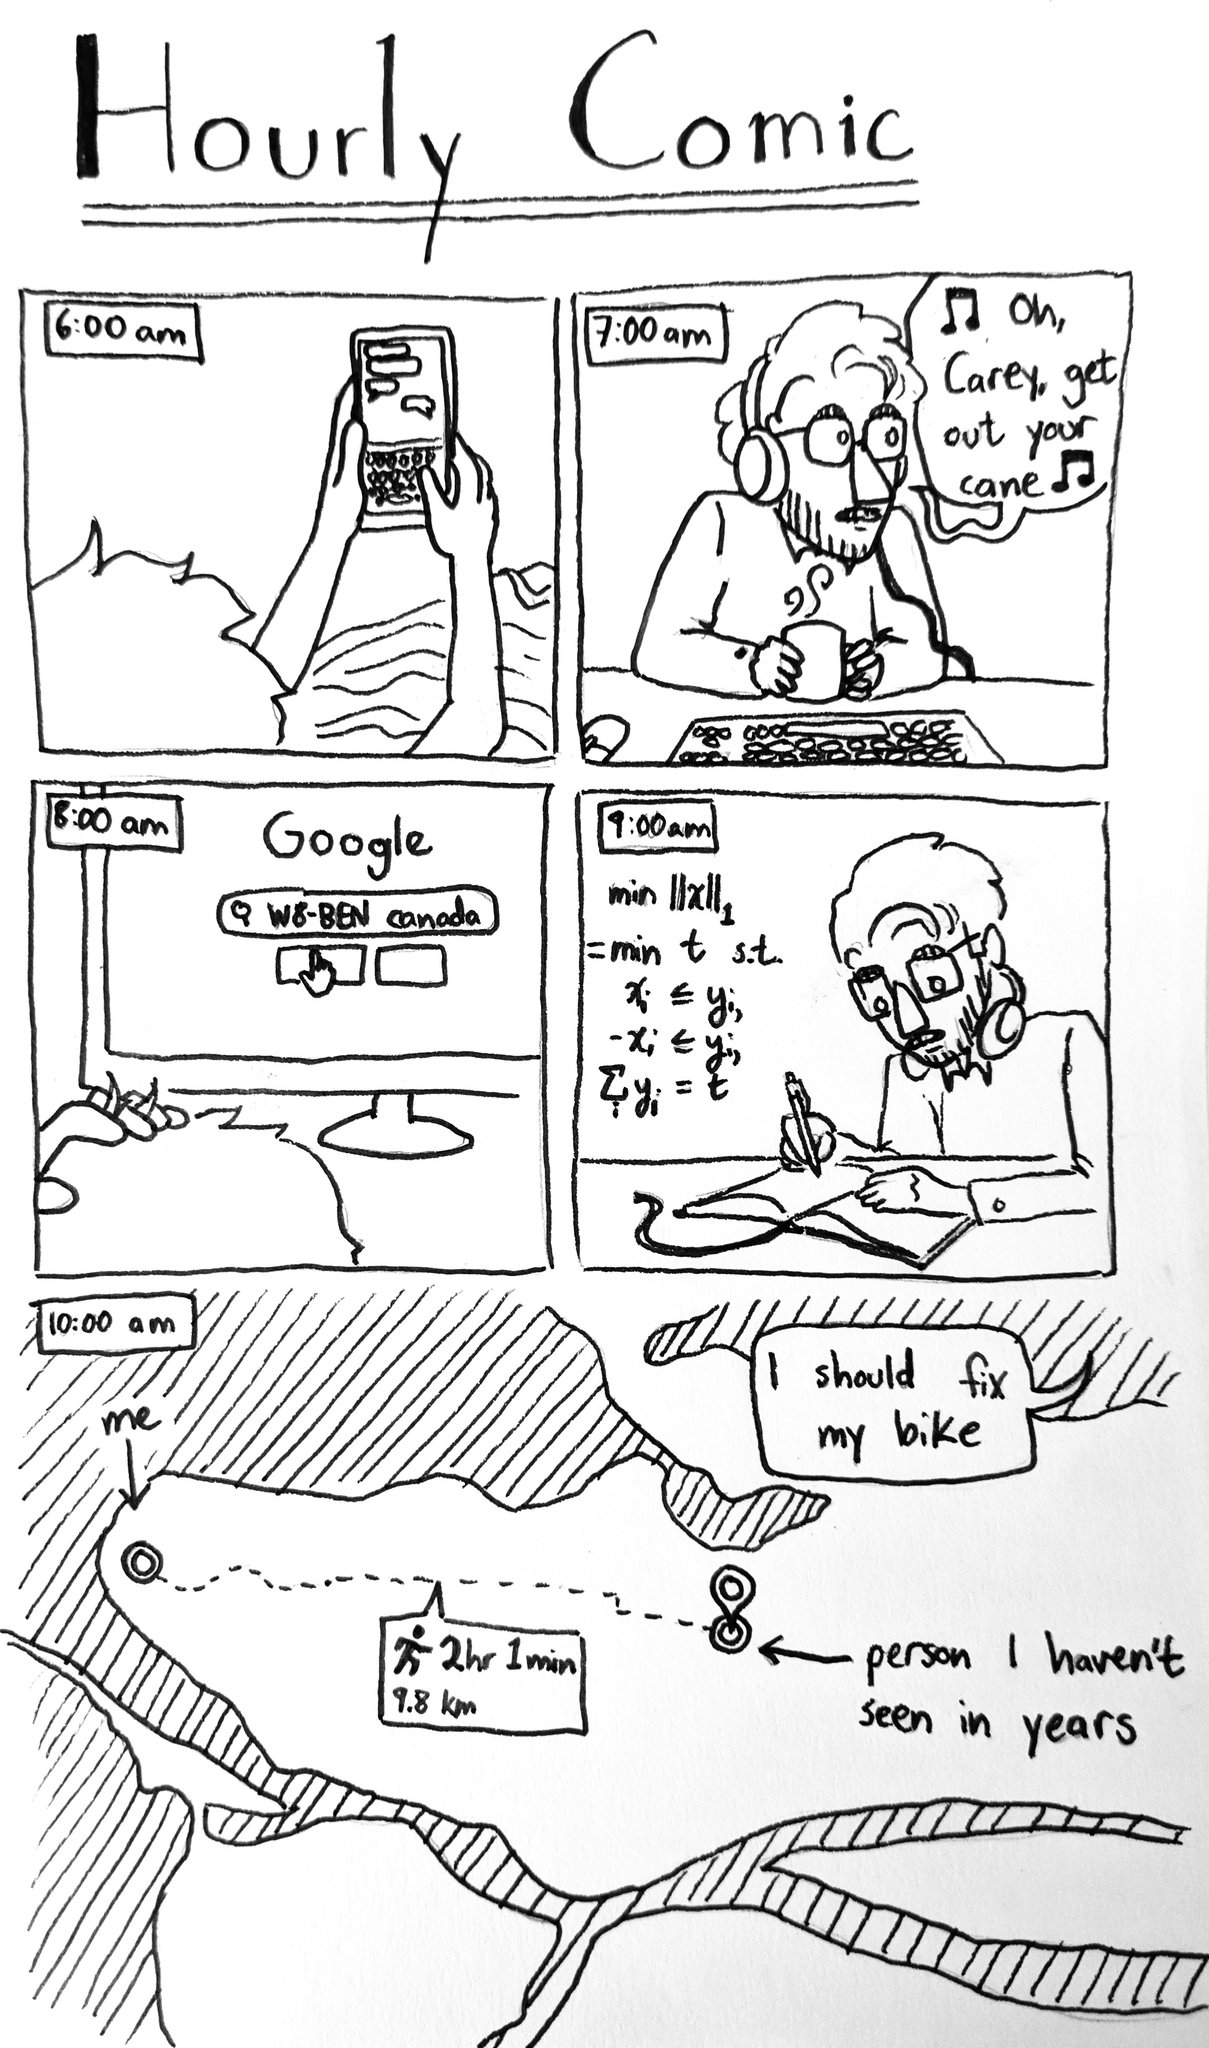 Hourly Comic
6:00 am
7:00 am
♫ Oh,
Carey, get
out your
cane ♫
8:00 am
Google
W8-BEN canada
9:00am
min ||x||₁
=min t s.t.
xᵢ ≤ yᵢ,
-xᵢ ≤ yᵢ,
∑ᵢ yᵢ = t
10:00 am
I should fix
my bike
me
2hr 1min
9.8 km
person I haven't
seen in years